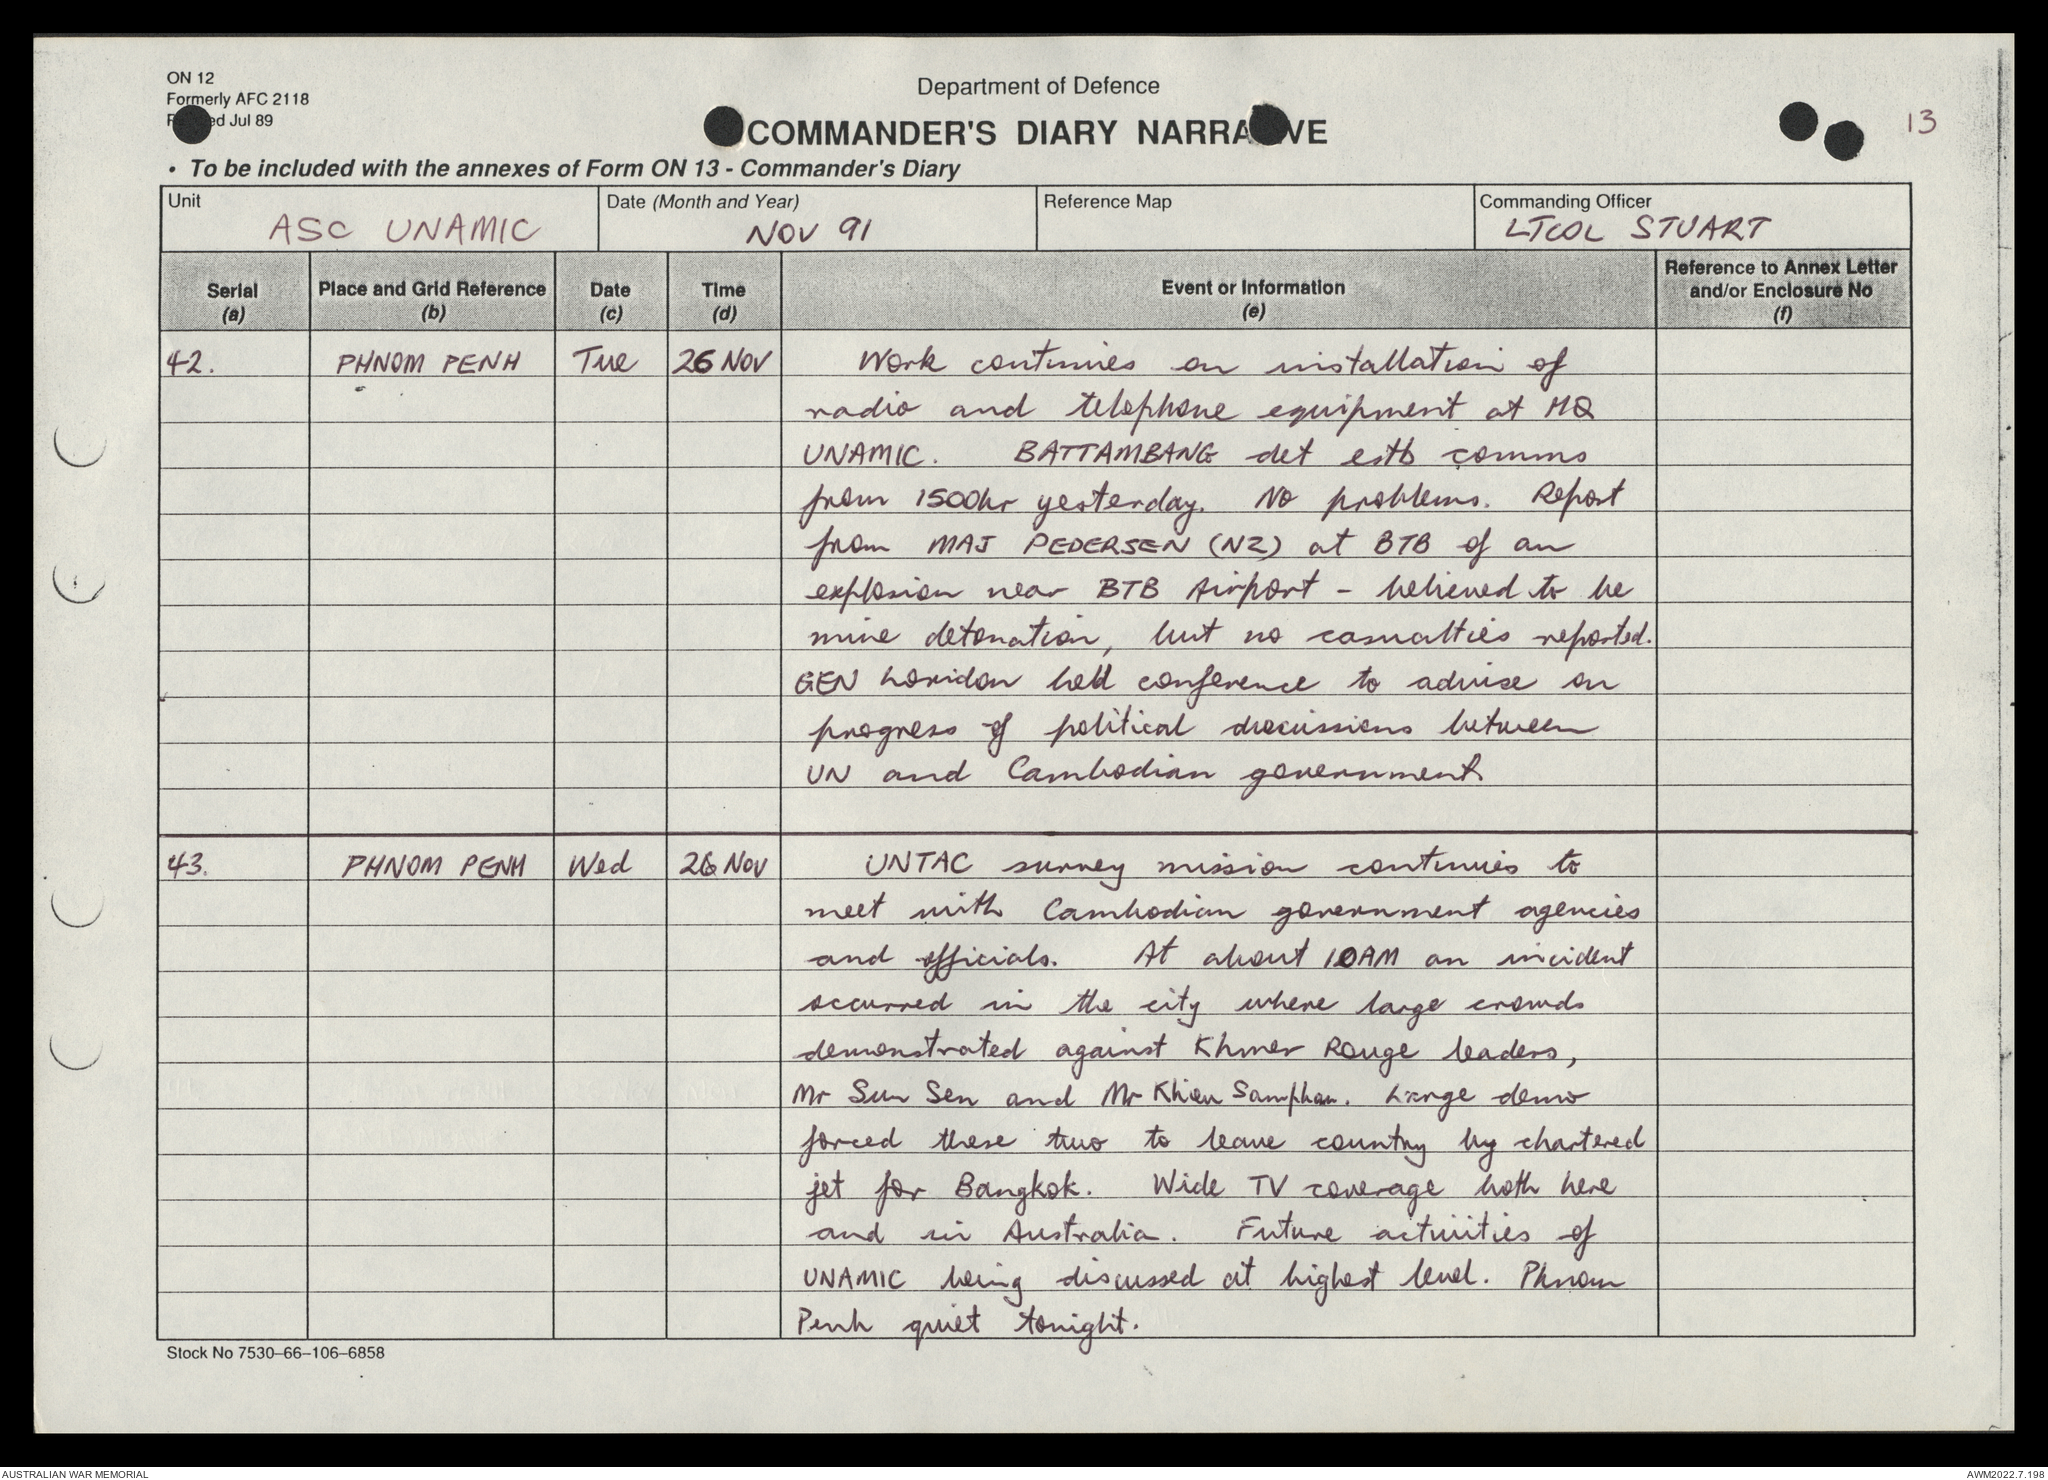 ON 12
Formerly AFC 2118
ed Jul 89
Department of Defence
COMMANDER'S DIARY NARRA VE
13
• To be included with the annexes of Form ON 13 - Commander's Diary
Unit
ASC UNAMIC
Date (Month and Year)
NOV 91
Reference Map
Commanding Officer
LTCOL STUART
Serial
(a)
Place and Grid Reference
(b)
Date
(c)
Time
(d)
Event or Information
(e)
Reference to Annex Letter
and/or Enclosure No
(f)
42. PHNOM PENH Tue 26 NOV Work continues on installation of
radio and telephone equipment at HQ
UNAMIC. BATTAMBANG det estb comms
from 1500hr yesterday. No problems. Report
from MAJ PEDERSEN (NZ) at BTB of an
explosion near BTB Airport - believed to be
mine detonation, but no casualties reported.
GEN Loridon held conference to advise on
progress of political discussions between
UN and Cambodian government
43. PHNOM PENH Wed 26 Nov UNTAC survey mission continues to
meet with Cambodian government agencies
and officials. At about 10AM an incident
occurred in the city where large crowds
demonstrated against Khmer Rouge leaders,
Mr Sun Sen and Mr Khieu Samphan. Large demo
forced these two to leave country by chartered
jet for Bangkok. Wide TV coverage both here
and in Australia. Future activities of
UNAMIC being discussed at highest level. Phnom
Penh quiet tonight.
Stock No 7530–66–106–6858
AUSTRALIAN WAR MEMORIAL
AWM2022.7.198